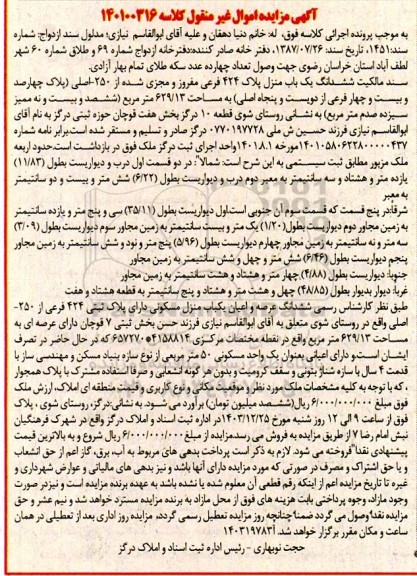 آگهی مزایده اموال غیر منقول کلاسه ۱۴۰۱۰۰۳۱۶
به موجب پرونده اجرائی کلاسه فوق، له: خانم دنیا دهقان و علیه آقای ابوالقاسم نیازی؛ مدلول سند ازدواج: شماره
سند: ۱۴۵۱، تاریخ سند: ۱۳۸۷/۰۷/۲۶، دفتر خانه صادر کننده: دفترخانه ازدواج شماره ۶۹ و طلاق شماره ۶۰ شهر
لطف آباد استان خراسان رضوی جهت وصول تعداد چهارده عدد سکه طلای تمام بهار آزادی.
سند مالکیت ششدانگ یک باب منزل پلاک ۴۲۴ فرعی مفروز و مجزی شده از ۲۵۰-اصلی (پلاک چهارصد
و بیست و چهار فرعی از دویست و پنجاه اصلی) به مساحت ۶۲۹/۱۳ متر مربع (ششصد و بیست و نه ممیز
سیزده صدم متر مربع) به نشانی روستای شوی قطعه ۱۰ درگز بخش هفت قوچان حوزه ثبتی درگز به نام آقای
ابوالقاسم نیازی فرزند حسین ش ملی ۰۷۷۰۱۹۷۷۲۸ درگز صادر و تسلیم و مستقر شده است.برابر نامه شماره
۱۴۰۱۰۵۸۰۶۲۲۸۰۰۰۰۴۳۷ مورخه ۱۴۰۱.۸.۱ واحد اجرای ثبت درگز ملک فوق در بازداشت است.حدود اربعه
ملک مزبور مطابق ثبت سیستمی به این شرح است: شمالا: در دو قسمت اول درب و دیواریست بطول (۱۱/۸۳)
یازده متر و هشتاد و سه سانتیمتر به معبر دوم درب و دیواریست بطول (۶/۲۲) شش متر و بیست و دو سانتیمتر
به معبر
شرقا:در پنج قسمت که قسمت سوم آن جنوبی است،اول دیواریست بطول (۳۵/۱۱) سی و پنج متر و یازده سانتیمتر
به زمین مجاور دوم دیواریست بطول (۱/۲۰) یک متر و بیست سانتیمتر به زمین مجاور سوم دیواریست بطول (۳/۰۹)
سه متر و نه سانتیمتر به زمین مجاور چهارم دیواریست بطول (۵/۹۶) پنج متر و نود و شش سانتیمتر به زمین مجاور
پنجم دیواریست بطول (۶/۴۶) شش متر و چهل و شش سانتیمتر به زمین مجاور
جنوبا: دیواریست بطول (۴/۸۸) چهار متر و هشتاد و هشت سانتیمتر به زمین مجاور
غربا: دیوار بدیوار بطول (۴۸/۸۵) چهل و هشت متر و هشتاد و پنج سانتیمتر به قطعه هشتاد و هفت
طبق نظر کارشناس رسمی ششدانگ عرصه و اعیان یکباب منزل مسکونی دارای پلاک ثبتی ۴۲۴ فرعی از ۲۵۰-
اصلی واقع در روستای شوی متعلق به آقای ابوالقاسم نیازی فرزند حسن بخش ثبتی ۷ قوچان دارای عرصه ای به
مساحت ۶۲۹/۱۳ متر مربع واقع در نقطه مختصات مرکزی ۴۱۵۸۸۱۴*۶۵۷۷۷۰ که در حال حاضر در تصرف
ایشان است و دارای اعیانی بعنوان یک واحد مسکونی ۵۰ متر مربعی از نوع سازه بنیاد مسکن و مهندسی ساز با
قدمت ۴ سال با سازه شناژ بتونی و سقف کرومیت و بدون هر گونه انشعابی و صرفا استفاده مشترک با پلاک همجوار
، که با توجه به کلیه مشخصات ملک مورد نظر و موقعیت مکانی و نوع کاربری و قیمت منطقه ای املاک، ارزش ملک
فوق مبلغ ۶/۰۰۰/۰۰۰/۰۰۰ ریال (ششصد میلیون تومان) برآورد می شود. به نشانی:درگز، روستای شوی ، پلاک
فوق از ساعت ۹ الی ۱۲ روز شنبه مورخ ۱۴۰۳/۱۲/۲۵ در اداره ثبت اسناد و املاک درگز واقع در شهرک فرهنگیان
نبش امام رضا ۷ از طریق مزایده به فروش می رسد.مزایده از مبلغ ۶/۰۰۰/۰۰۰/۰۰۰ ریال شروع و به بالاترین قیمت
پیشنهادی نقدا فروخته می شود. لازم به ذکر است پرداخت بدهی های مربوط به آب، برق، گاز اعم از حق انشعاب
و یا حق اشتراک و مصرف در صورتی که مورد مزایده دارای آنها باشد و نیز بدهی های مالیاتی و عوارض شهرداری و
غیره تا تاریخ مزایده اعم از اینکه رقم قطعی آن معلوم شده یا نشده باشد به عهده برنده مزایده است و نیز در صورت
وجود مازاد، وجوه پرداختی بابت هزینه های فوق از محل مازاد به برنده مزایده مسترد خواهد شد و نیم عشر و حق
مزایده نقدا وصول می گردد ضمنا چنانچه روز مزایده تعطیل رسمی گردد، مزایده روز اداری بعد از تعطیلی در همان
ساعت و مکان مقرر برگزار خواهد شد. آ۱۴۰۳۱۹۷۸۳
حجت نوبهاری - رئیس اداره ثبت اسناد و املاک درگز